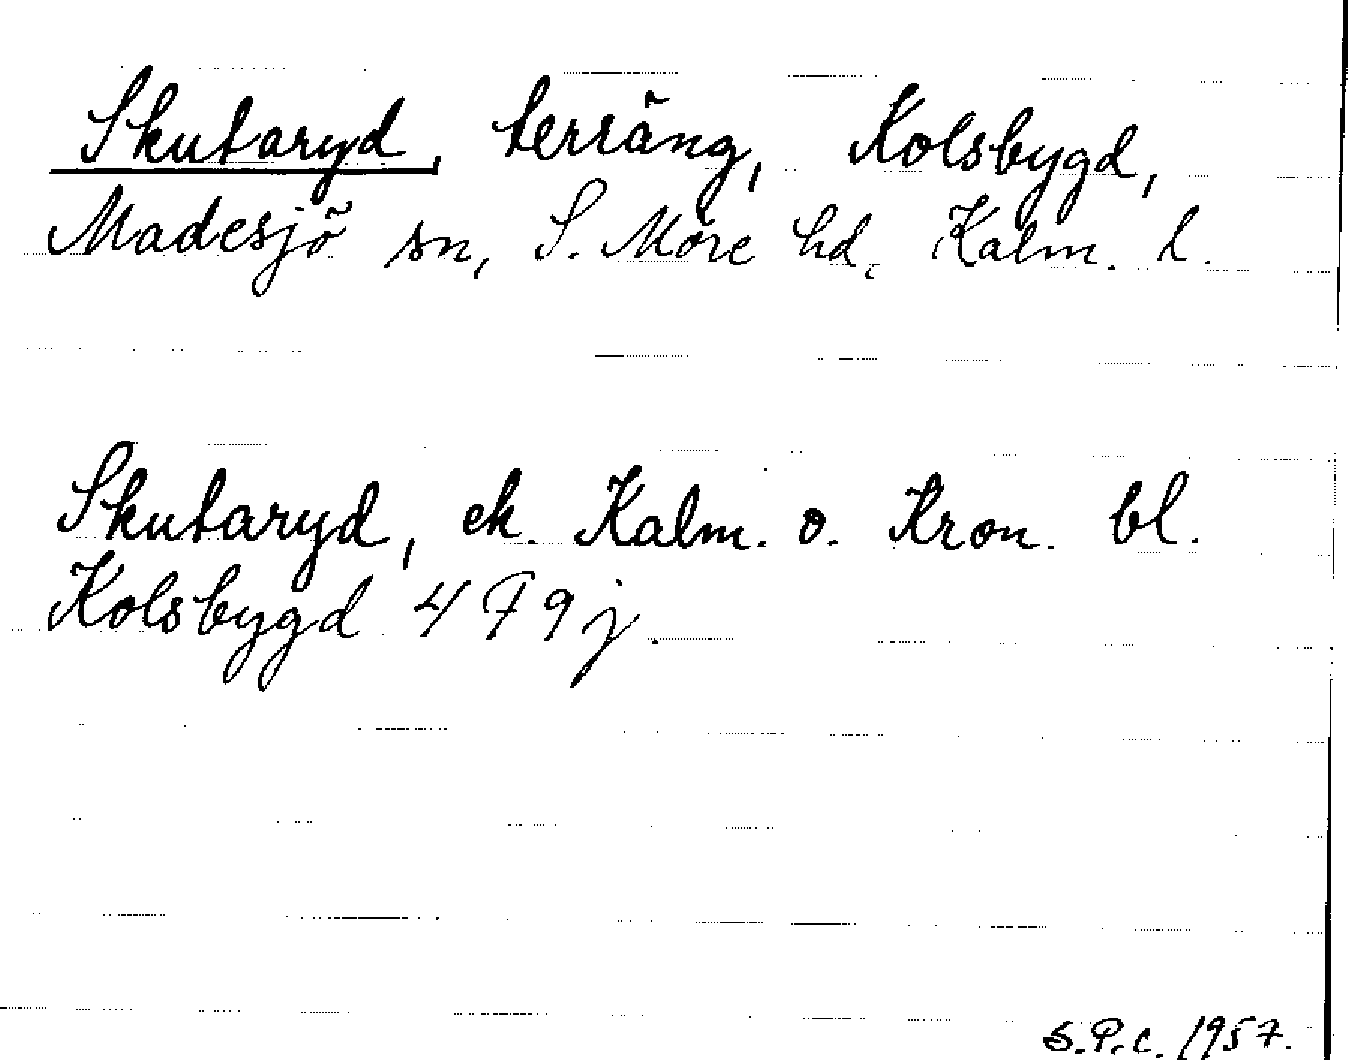 Skutaryd, terräng, Kolsbygd,
Madesjö sn, S. Möre hd, Kalm. l.
Skutaryd, ek. Kalm. o. Kron. bl.
Kolsbygd 4 F 9 j.
S.P.C. 1957.